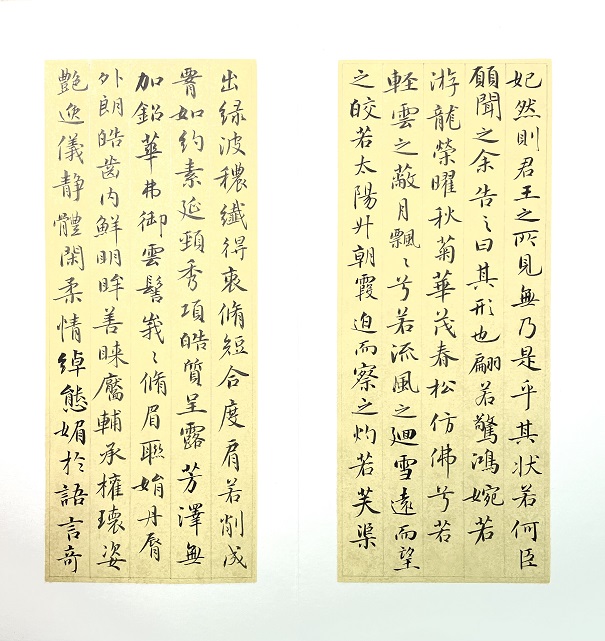 妃然則君王之所見無乃是乎其狀若何臣
願聞之余告之曰其形也翩若驚鴻婉若
游龍榮曜秋菊華茂春松仿佛兮若
輕雲之蔽月飄〻兮若流風之迴雪遠而望
之皎若太陽升朝霞迫而察之灼若芙渠
出綠波穠纖得衷脩短合度肩若削成
䏿如約素延頸秀項皓質呈露芳澤無
加鉛華弗御雲髻峩〻脩眉聯娟丹脣
外朗皓齒內鮮明眸善睞靨輔承權瓌姿
艶逸儀靜體閑柔情綽態媚於語言奇